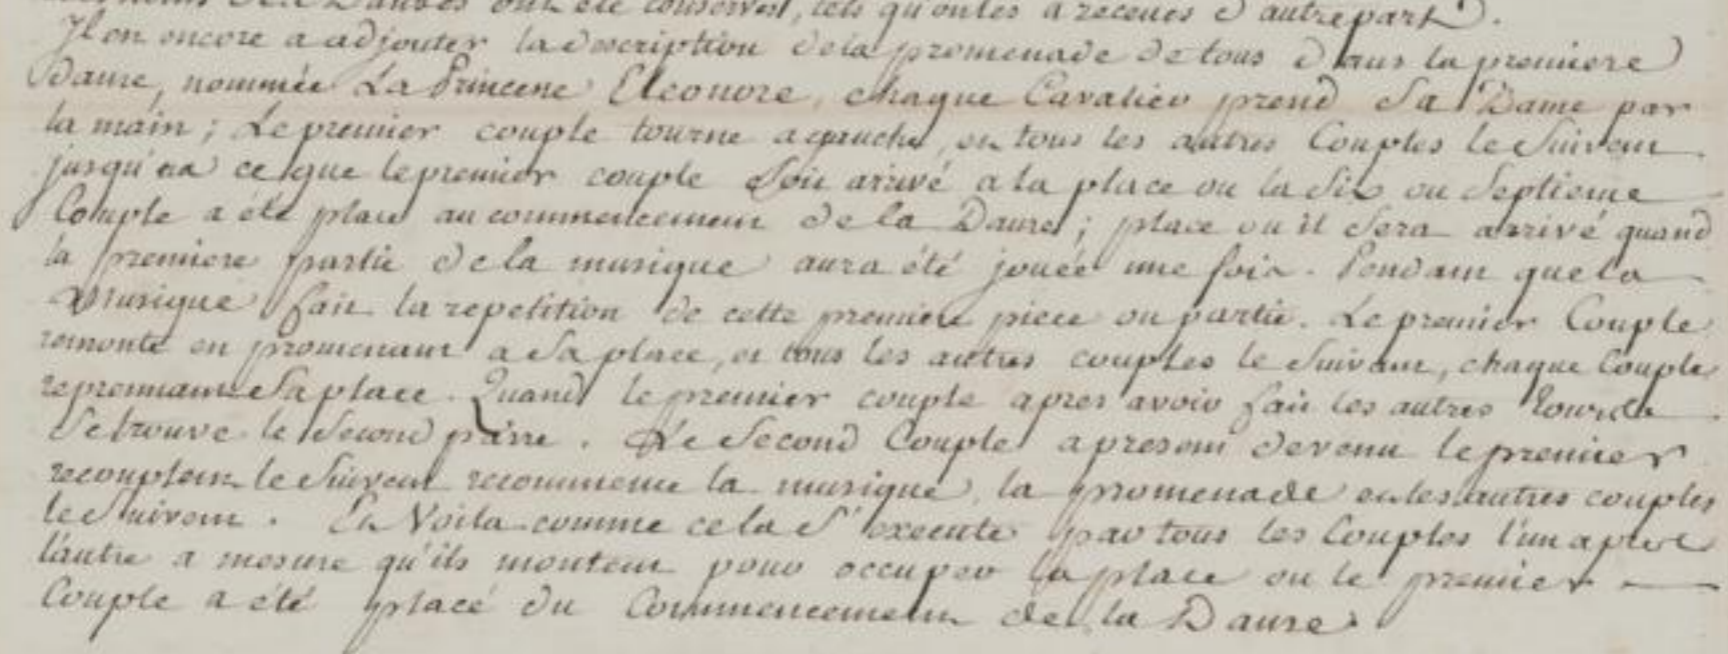 des Danses ont été conservés, tels qu'on les a recenes d'autre part.
Il en encore a adjouter la description de la promenade de tous dans la premiere
danse, nommée La Princesse Eleonore, chaque Cavalier prend Sa Dame par
la main; Le premier couple tourne a gauche, et tous les autres Couples le Suivent
jusqu'ea ce que le premier couple Soit arrivé a la place ou la Six ou Septieme
Couple a été placé au commencement de la Danse; place ou il Sera arrivé quand
la premiere partie de la musique aura été jouée une fois. Pendant que la
Musique fait la repetition de cette premiere piece ou partie. Le premier Couple
remonte en promenant a Sa place, et tous les autres couples le Suivant, chaque Couple
reprennant Sa place. Quand le premier couple apres avoir fait les autres tours de
Se trouve le Second . Le Second Couple apresent devenu le premier
le Suivant recommence la musique, la promenade et les autres couples
le Suivent. Et Voila comme cela S'execute par tous les Couples l'un apres
l'autre a mesure qu'ils montent pour occuper la place ou le premier
Couple a été placé du Commencement de la Danse.